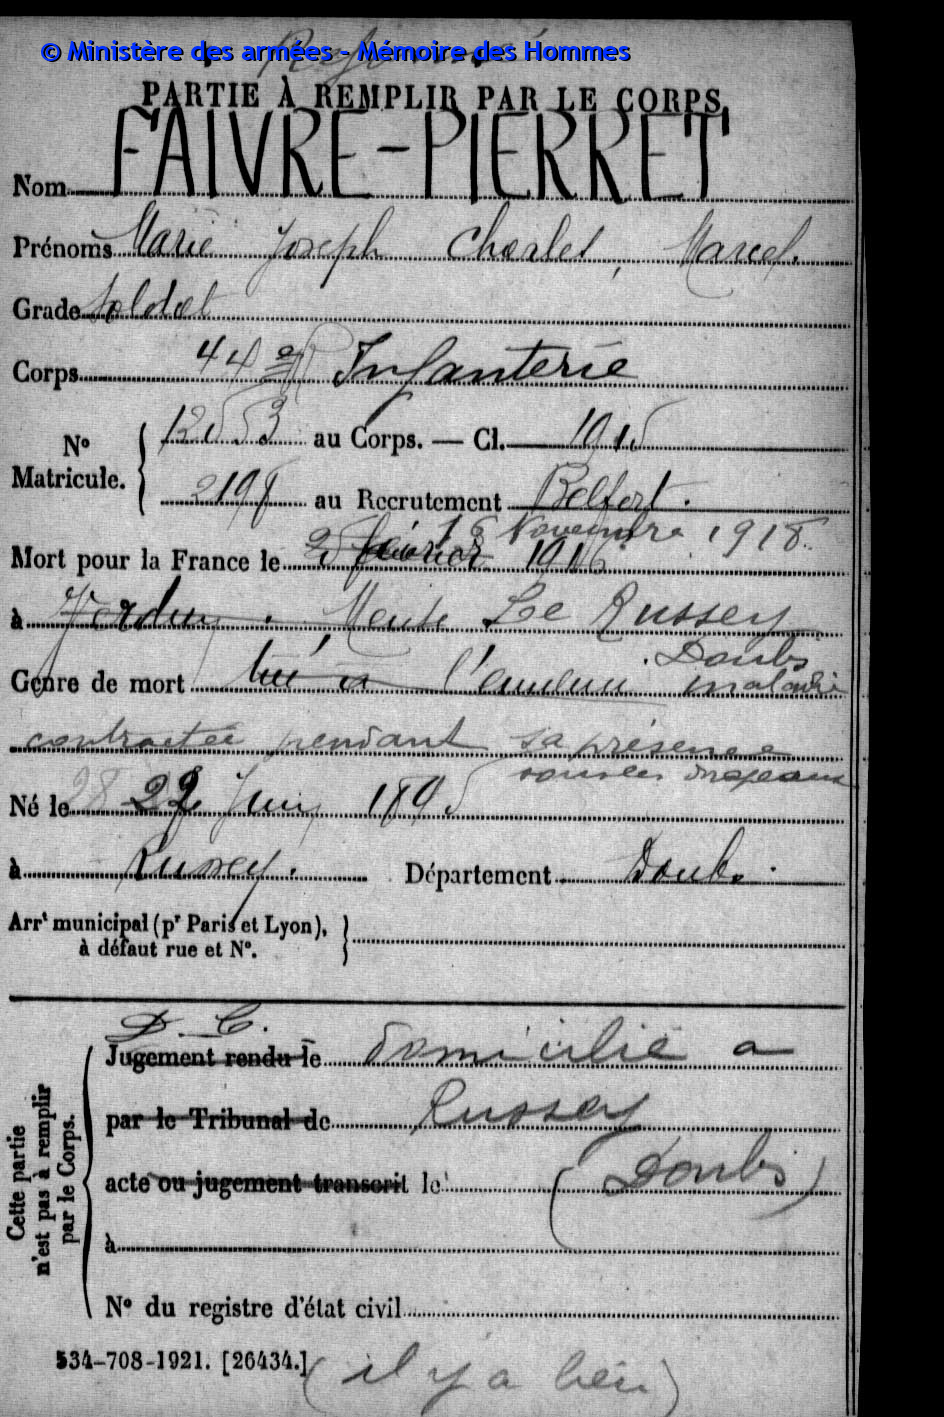 © Ministère des armées - Mémoire des Hommes
PARTIE À REMPLIR PAR LE CORPS
Nom FAIVRE-PIERRET
Prénoms Marie Joseph Charles, Marcel.
Grade Soldat
Corps 44e Infanterie
12553 au Corps. — Cl. 1915
No Matricule.
2198 au Recrutement Belfort.
16 Novembre 1918
Mort pour la France le 25 février 1916
à Verdun. Meuse Le Russey
Doubs
Genre de mort tué à l'ennemi maladie
contractée pendant sa présence
sous les drapeaux
Né le 28 Juin 1895
à Russey. Département Doubs.
Arrt municipal (pr Paris et Lyon),
à défaut rue et No.
D. C.
Jugement rendu le domicilié a
par le Tribunal de Russey
acte ou jugement transcrit le (Doubs)
à
No du registre d'état civil
Cette partie
n'est pas à remplir
par le Corps.
534-708-1921. [26434.]
(il y a lieu)